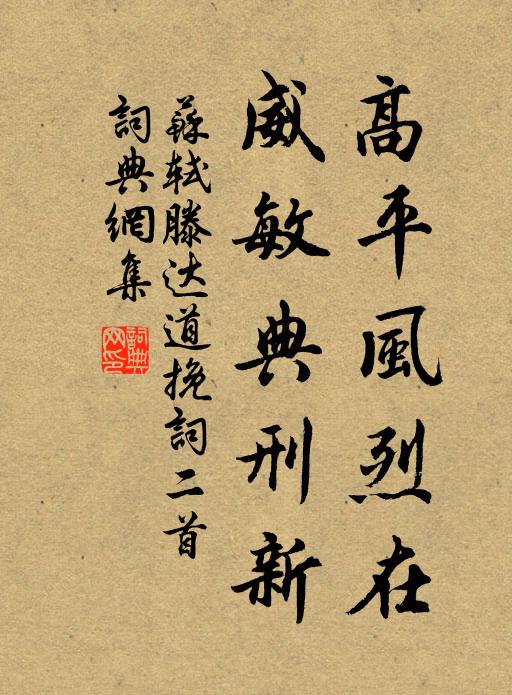 高平風烈在
威敏典刑新
蘇軾滕达道挽詞二首
詞典網集
詞典网印